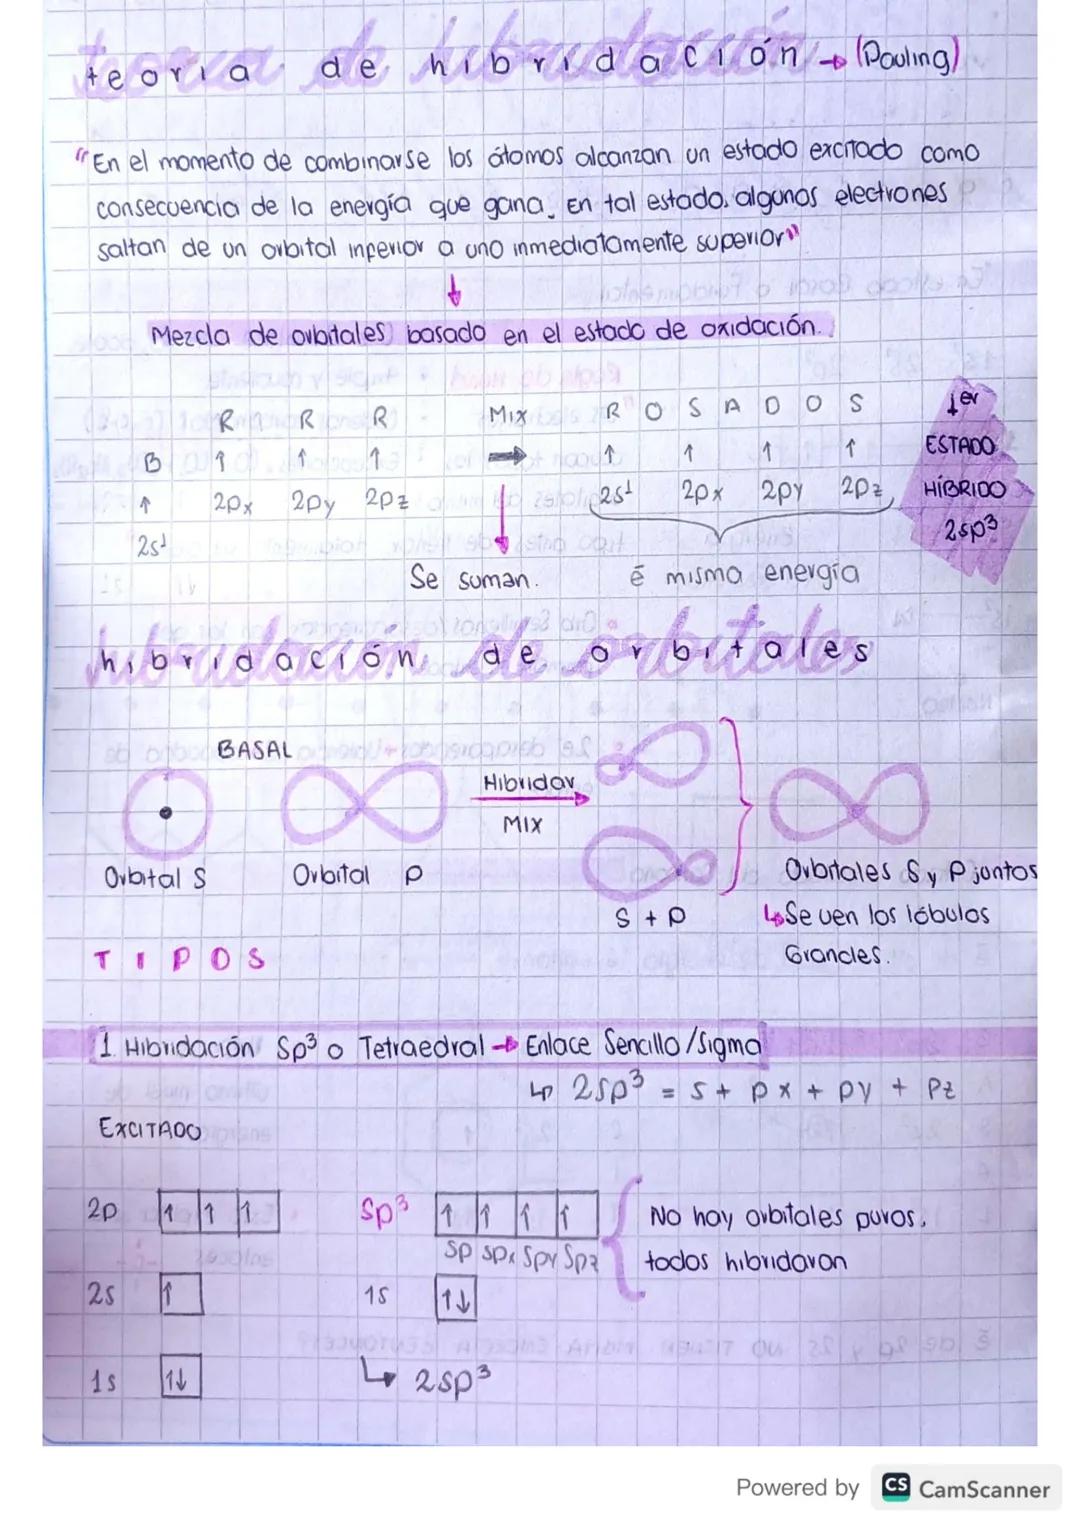 teoría de hibridación → (Pauling)
"En el momento de combinarse los átomos alcanzan un estado excitado como
consecuencia de la energía que gana. En tal estado. algunos electrones
saltan de un orbital inferior a uno inmediatamente superior"
↓
Mezcla de orbitales basado en el estado de oxidación.
R R R Mix R O S A D O S 1er
B ↑ ↑ ↑ → ↑ ↑ ↑ ↑ ESTADO
↑ 2px 2py 2pz 2s¹ 2px 2py 2pz HÍBRIDO
2s¹ 2sp³
Se suman. ē misma energía
hibridación de orbitales
BASAL
Hibridar
MIX
Orbital S Orbital P Orbitales S y P juntos
S + P ↳ Se ven los lóbulos
Grandes.
TIPOS
1. Hibridación Sp³ o Tetraedral → Enlace Sencillo/Sigma
↳ 2sp³ = s + px + py + pz
EXCITADO
2p ↑ ↑ ↑ Sp³ ↑ ↑ ↑ ↑ No hay orbitales puros,
Sp Spx Spy Spz todos hibridaron
2s ↑ 1s ↑↓
1s ↑↓ ↳ 2sp³
Powered by CS CamScanner